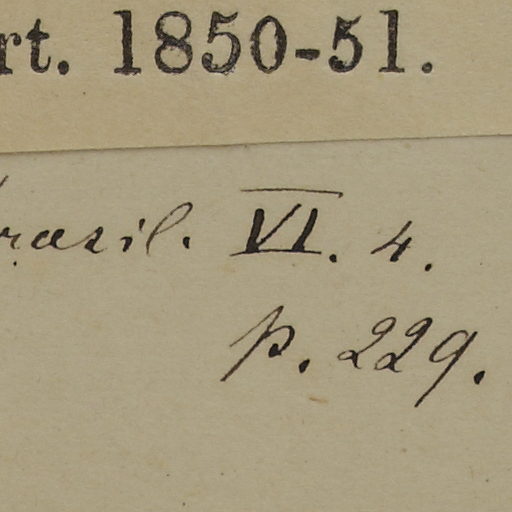 rt. 1850-51.
rasil. VI. 4.
p. 229.